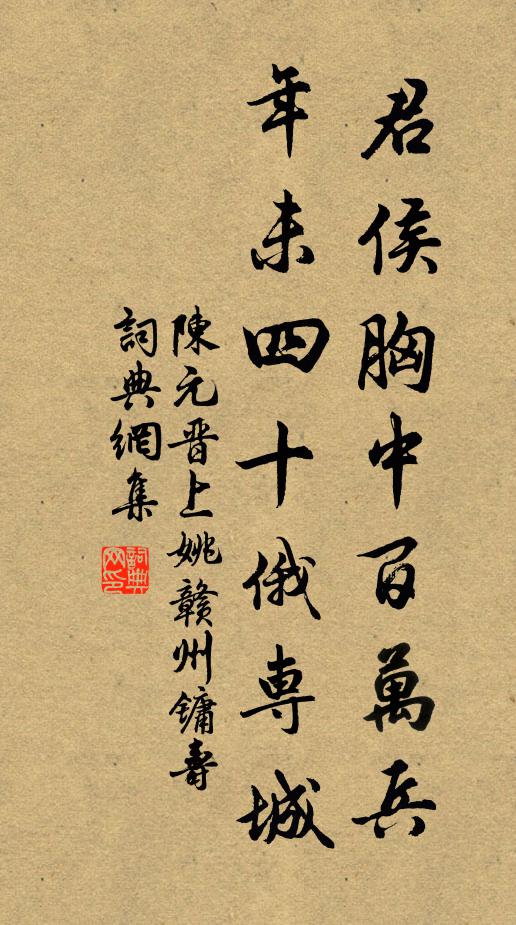 君侯胸中百萬兵
年未四十俄専城
陳元晋上姚贛州鏞壽
詞典網集
詞典網印